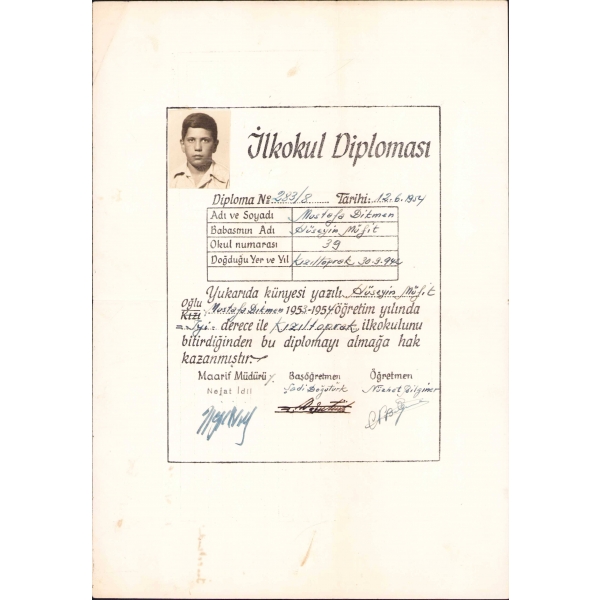 İlkokul Diploması
Diploma No 283/8 Tarihi: 12.6.1954
Adı ve Soyadı Mustafa Dikmen
Babasının Adı Hüseyin Müfit
Okul numarası 39
Doğduğu Yer ve Yıl Kızıltoprak 30.9.942
Yukarıda künyesi yazılı Hüseyin Müfit
Oğlu
Kızı Mustafa Dikmen 1953-1954 öğretim yılında
= İyi = derece ile Kızıltoprak ilkokulunu
bitirdiğinden bu diplomayı almağa hak
kazanmıştır.
Maarif Müdürü Başöğretmen Öğretmen
Nejat İdil Sadi Doğutürk Nüzhet Bilginer